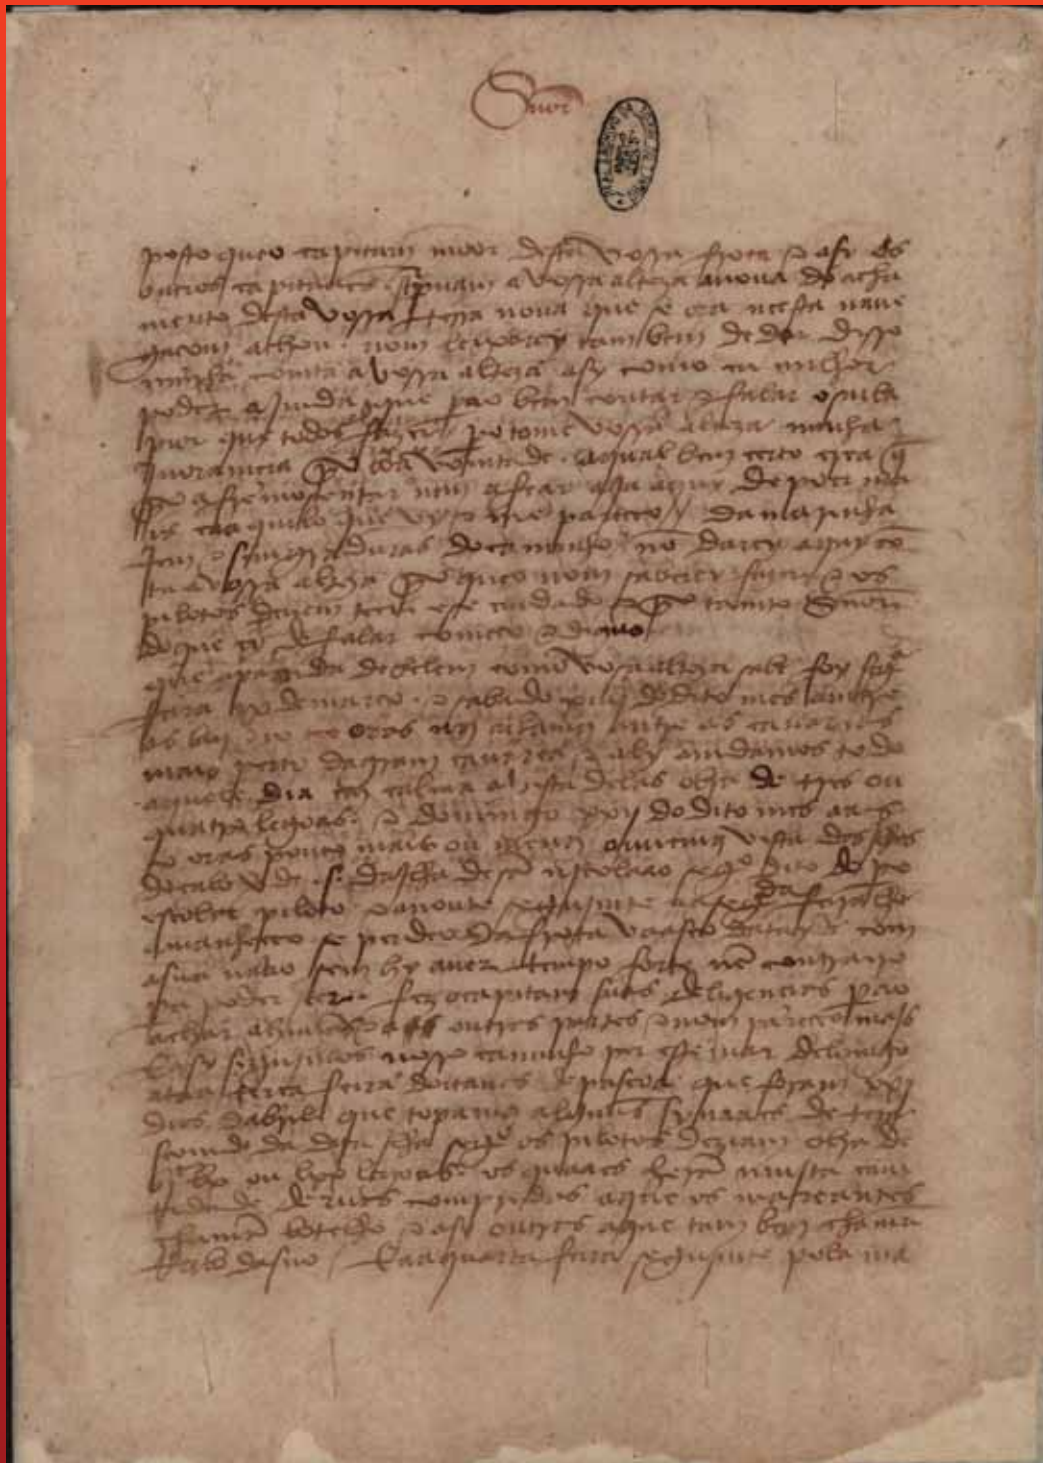 Snõr
posto queo capitam moor desta vossa frota e asy os
outros capitaães screpuam a vossa alteza anoua do acha
mento desta vossa terra noua que se ora neesta naue
gaçom achou. nom leixarey tambem de dar disso
minha comta avossa alteza asy como eu milhor
poder ajmda que pera obem contar e falar osaiba
pior que todos fazer. pero tome vossa alteza minha
jnoramçia por boa vomtade. aqual bem certo crea q̃
por afremosentar nem afear aja aquy de poer ma
is caaquilo que vy e me pareçeo / damarinha
jem e simgraduras docaminho nõ darey aquy cõ
ta a vossa alteza porque o nom saberey fazer e os
pilotos deuem teer ese cuidado e por tamto Snõr
do que ey de falar começo e diguo
que apartida de belem como vosa alteza sabe foy segª
feira ix de março. e sabado xiiij do dito mes amtre
as biij e ix oras nos achamos amtre as canareas
mais perto da gram canarea e aly amdamos todo
aquele dia em calma a vista delas obra de tres ou
quatro legoas. e domingo xxij do dito mes aas
x oras pouco mais ou menos ouuemos vista das jlhas
do cabo verde .s. da jlha de sã njcolaao segº dito de pº
escolar piloto. e anoute segujmte aasegda feira lhe
amanheçeo se perdeo da frota vaasco datayde com
a sua naao sem hy auer tempo forte nẽ contrairo
pera poder seer. fez ocapitam suas deligençias perao
achar ahuũas e a outras partes e nom pareçeo majs
E asy segujmos nosso caminho per este mar delomgo
ataa terça feira doitauas de pascoa que foram xxj
dias dabril que topamos alguũs synaaes de tera
seemdo da dita jlha segº os pilotos deziam obra de
bjc lx ou lxx legoas. os quaaes herã mujta cam
tidade deruas compridas aque os mareantes
chamã botelho e asy outras aque tambem chamã
Rabo dasno / E aaquarta feira segujmte pola ma